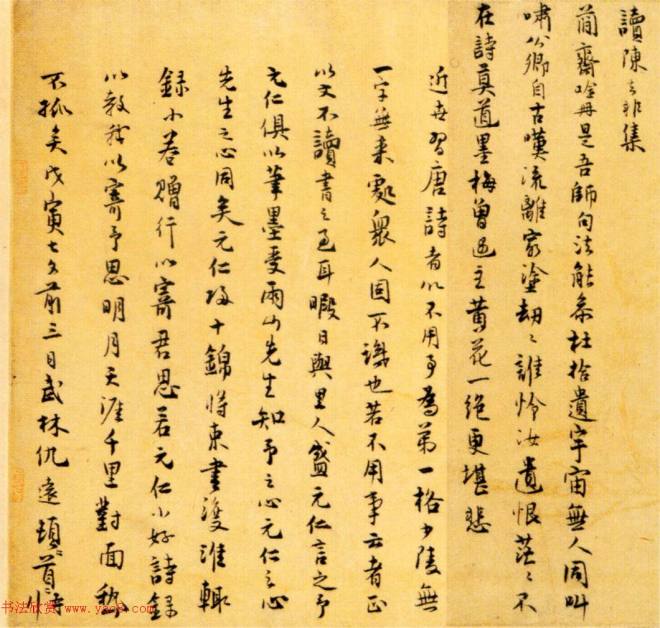 讀陳去非集
簡齋吟册是吾師句法能參杜拾遺宇宙無人同叫
嘯公卿自古嘆流離家塗刼〻誰怜汝遺恨茫〻不
在詩莫道墨梅曾遇主黃花一絕更堪悲
近世習唐詩者以不用事爲第一格少陵無
一字無來處衆人固不識也若不用事云者正
以文不讀書之過耳暇日與里人盛元仁言之予
元仁俱以筆墨受雨山先生知予之心元仁之心
先生之心同矣元仁歸十錦將東書渡淮輙
録小卷贈行以寄君思若元仁小好詩録
以教我以寄予思明月天涯千里對面
不孤矣戊寅七夕前三日武林仇遠頓首
书法欣赏